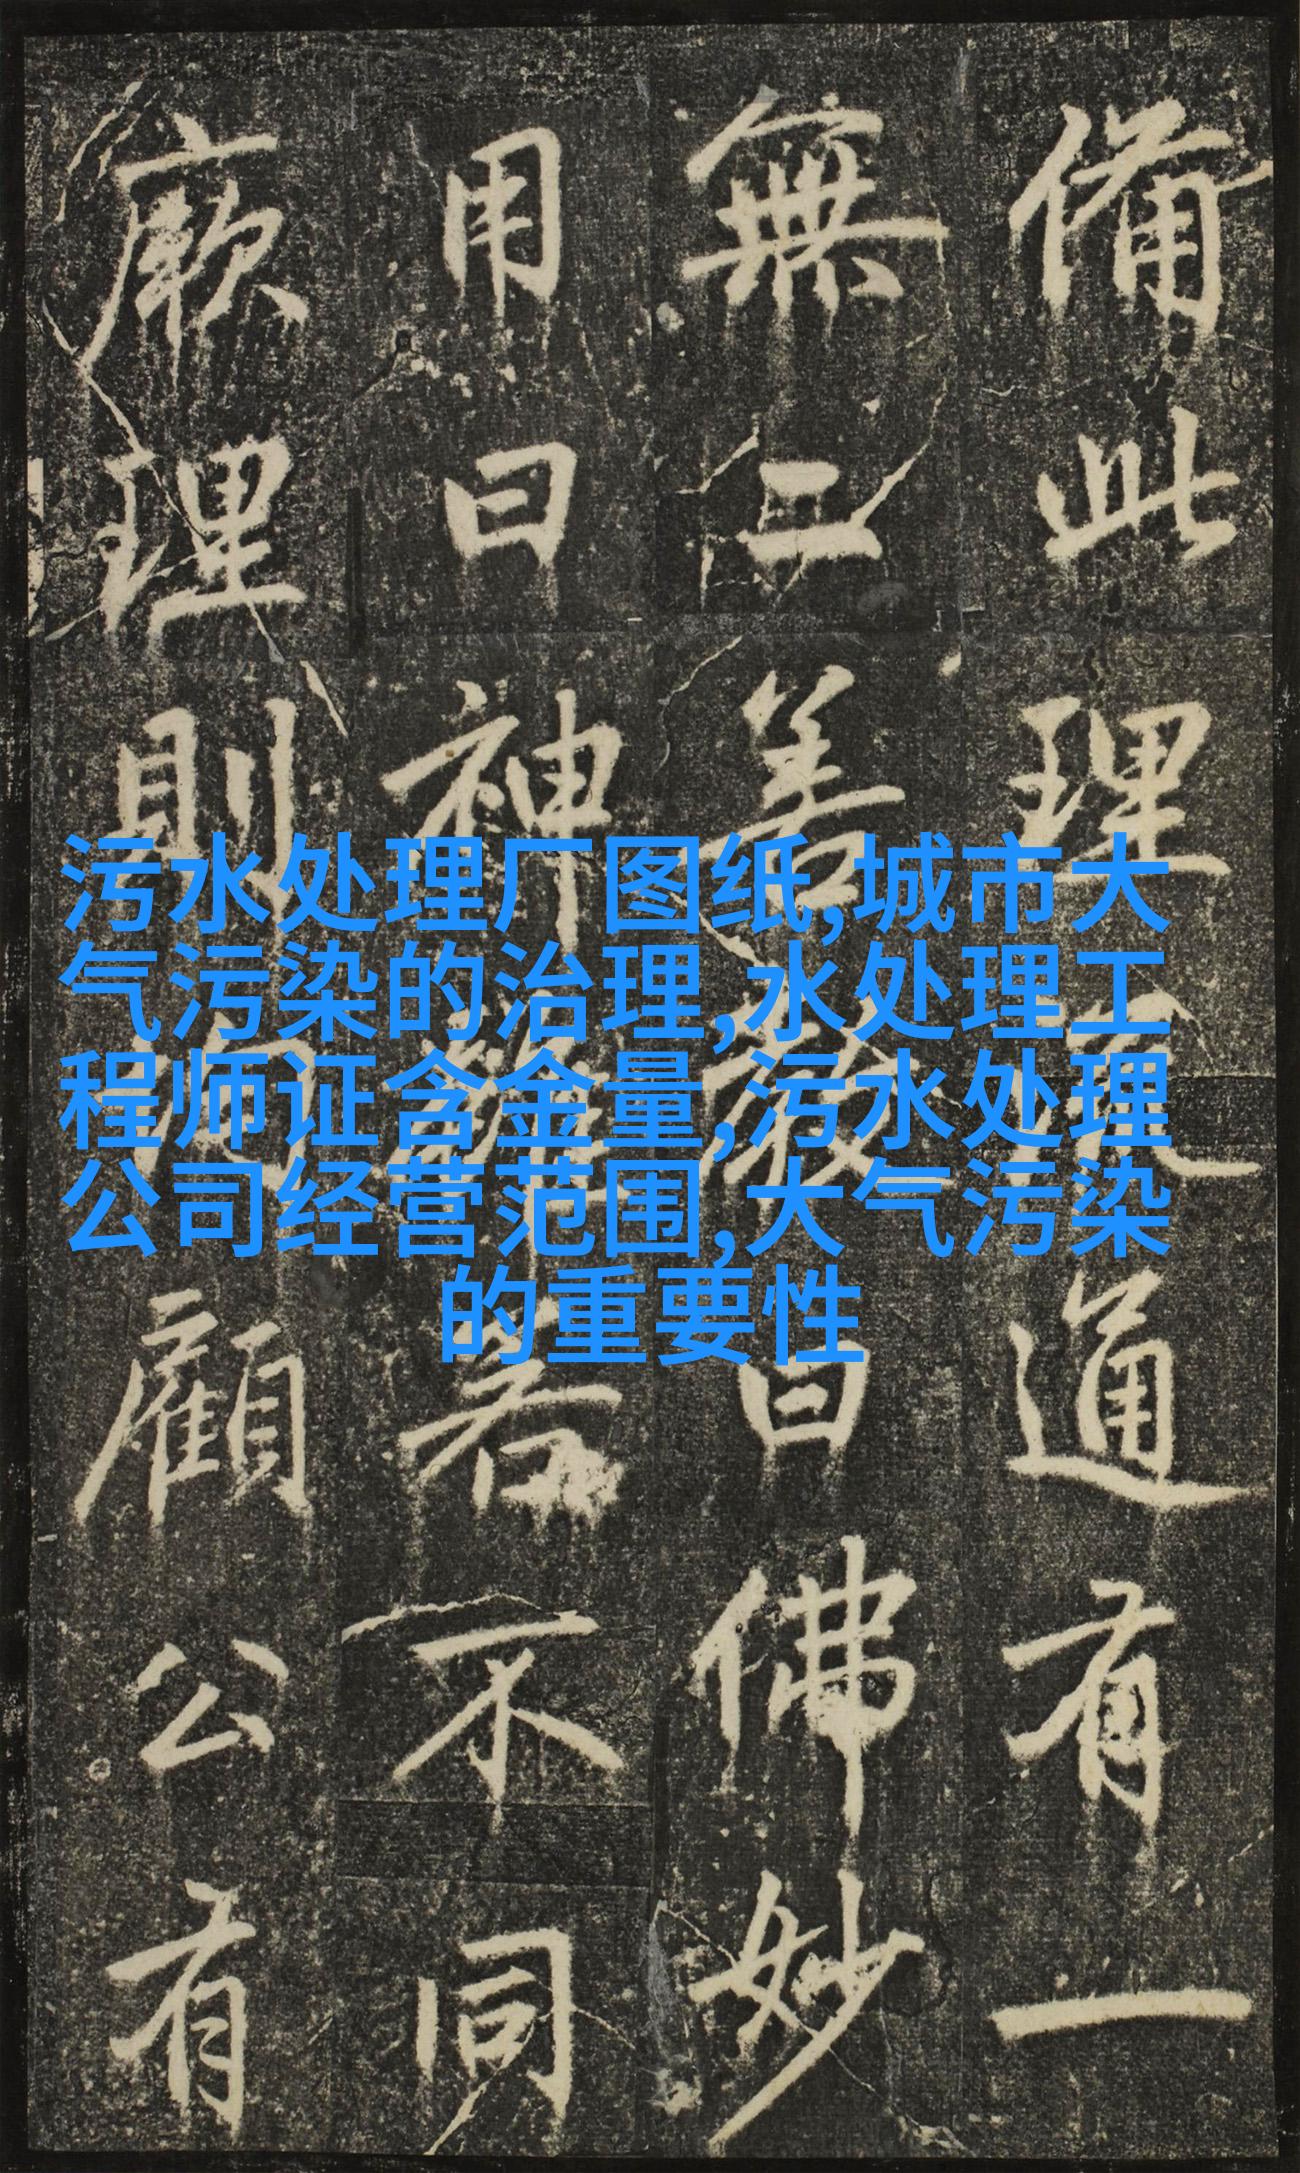 備此理通有一
無二善曰佛妙
用曰神若不同
厥理則顧公有
污水处理厂图纸,城市大
气污染的治理,水处理工
程师证含金量,污水处理
公司经营范围,大气污染
的重要性